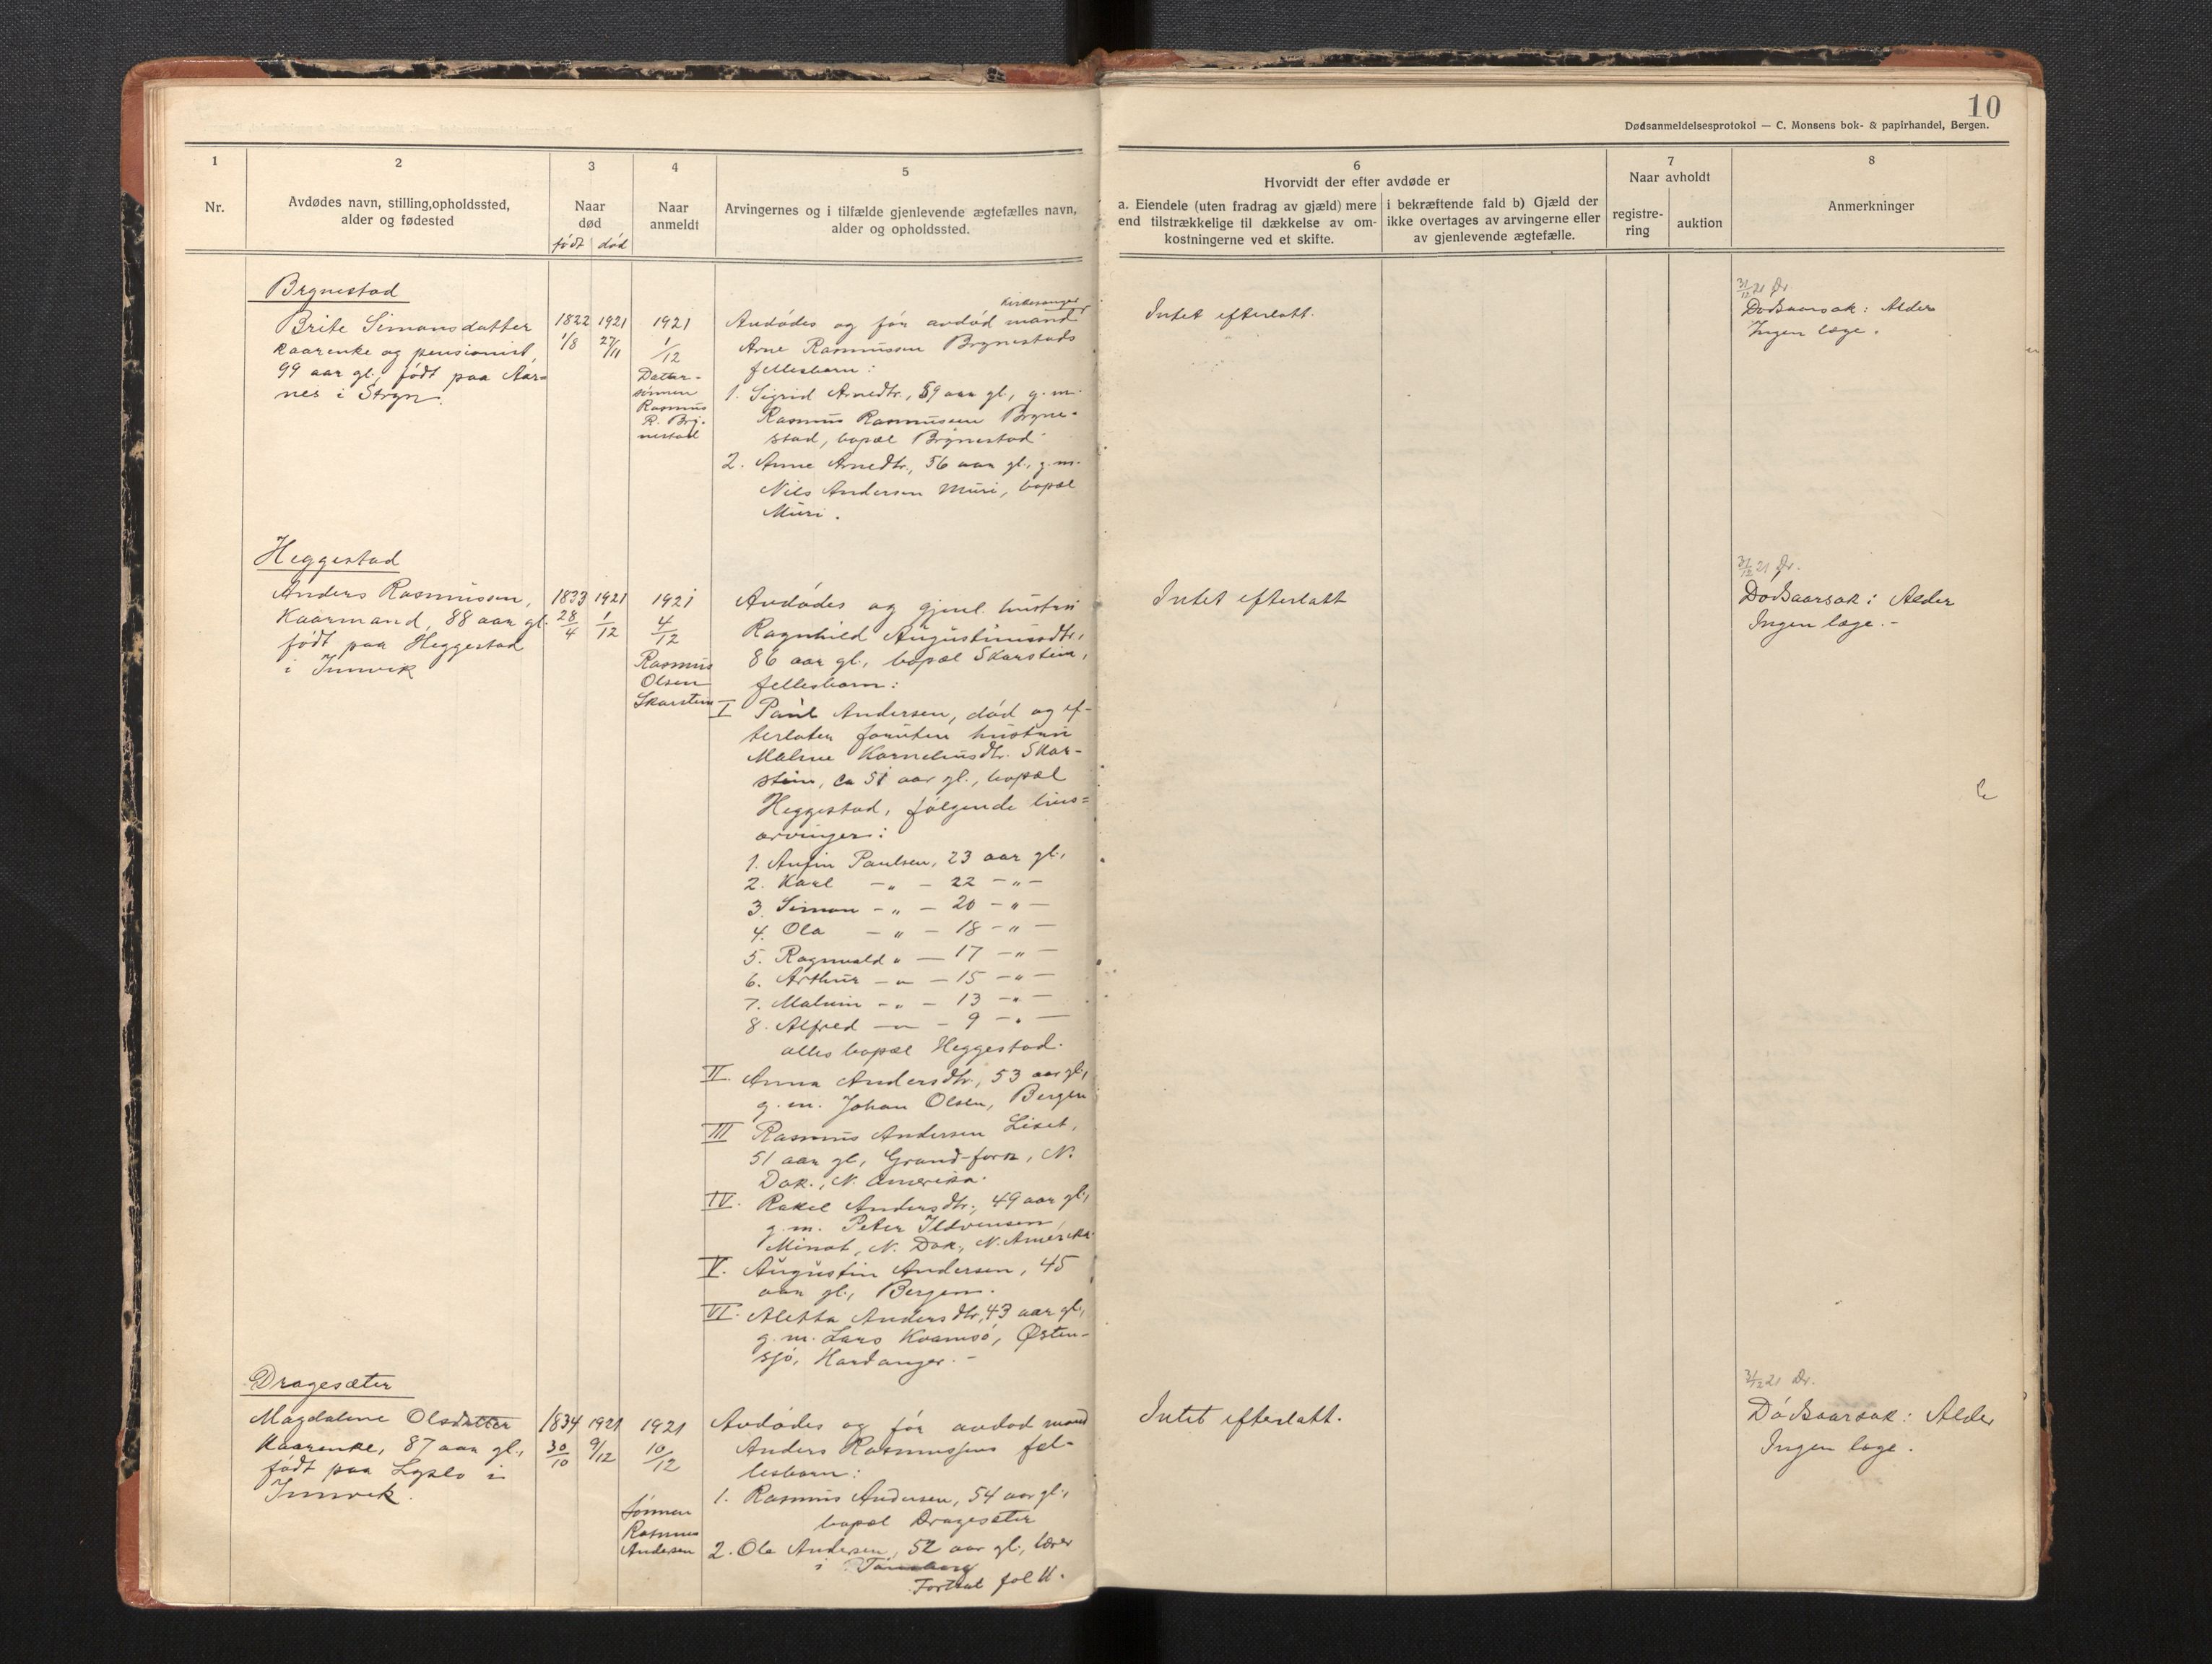 10
Dødsanmeldelsesprotokol — C. Monsens bok- & papirhandel, Bergen.
1
Nr.
2
Avdødes navn, stilling, opholdssted,
alder og fødested
3
Naar
død
født død
4
Naar
anmeldt
5
Arvingernes og i tilfælde gjenlevende ægtefælles navn,
alder og opholdssted.
6
Hvorvidt der efter avdøde er
a. Eiendele (uten fradrag av gjæld) mere
end tilstrækkelige til dækkelse av om-
kostningerne ved et skifte.
i bekræftende fald b) Gjæld der
ikke overtages av arvingerne eller
av gjenlevende ægtefælle.
7
Naar avholdt
registre-
ring
auktion
8
Anmerkninger
Brynestad
Brite Simonsdatter
kaarenke og pensionist,
99 aar gl. født paa Aar=
nes i Stryn.
1822
1/8
1921
27/11
1921
1/12
Datter-
sønnen
Rasmus
R. Bry-
nestad
kirkesanger
Avdødes og før avdød mand
Arne Rasmussen Brynestads
fellesbarn:
1. Sigrid Arnedtr., 59 aar gl., g.m.
Rasmus Rasmussen Bryne-
stad, bopæl Brynestad
2. Anne Arnedtr., 56 aar gl., g.m.
Nils Andersen Muri, bopæl
Muri.
Intet efterlatt.
31/12 21 Dr
Dødsaarsak: Alder
Ingen læge.
Heggestad
Anders Rasmussen,
Kaarmand, 88 aar gl.
født paa Heggestad
i Innvik
1833
28/4
1921
1/12
1921
4/12
Rasmus
Olsen
Skarstein
Avdødes og gjenl. hustru
Ragnhild Augustinusdtr.,
86 aar gl., bopæl Skarstein,
fellesbarn:
I Paul Andersen, død og ef-
terlater foruten hustru
Malene Korneliusdtr. Skar-
stein, ca 51 aar gl., bopæl
Heggestad, følgende livs=
arvinger:
1. Anfin Paulsen, 23 aar gl.,
2. Karl — „ — 22 — „ —
3. Simon — „ — 20 — „ —
4. Ola — „ — 18 — „ —
5. Ragnvald „ — 17 — „ —
6. Arthur — „ — 15 — „ —
7. Malvin — „ — 13 — „ —
8. Alfred — „ — 9 — „ —
alles bopæl Heggestad.
II. Anna Andersdtr., 53 aar gl.,
g.m. Johan Olsen, Bergen
III Rasmus Andersen Liset,
51 aar gl., Grand-fork, N.
Dak., N. Amerika.
IV. Rakel Andersdtr., 49 aar gl.,
g.m. Peter
Minot, N. Dak., N. Amerika.
V. Augustin Andersen, 45
aar gl., Bergen.
VI. Aletta Andersdtr, 43 aar gl.,
g.m. Lars Kvamsø, Østen-
sjø, Hardanger. —
Intet efterlatt
31/12 21 Dr.
Dødsaarsak: Alder
Ingen læge. —
Dragesæter
Magdalene Olsdatter
Kaarenke, 87 aar gl.,
født paa Lyslo i
Innvik.
1834
30/10
1921
9/12
1921
10/12
Sønnen
Rasmus
Andersen
Avdødes og før avdød mand
Anders Rasmussens fel-
lesbarn:
1. Rasmus Andersen, 54 aar gl.,
bopæl Dragesæter
2. Ole Andersen, 52 aar gl., lærer
i Tønsberg
Fortsat fol 11.
Intet efterlatt.
31/12 21 Dr.
Dødsaarsak: Alder
Ingen læge.